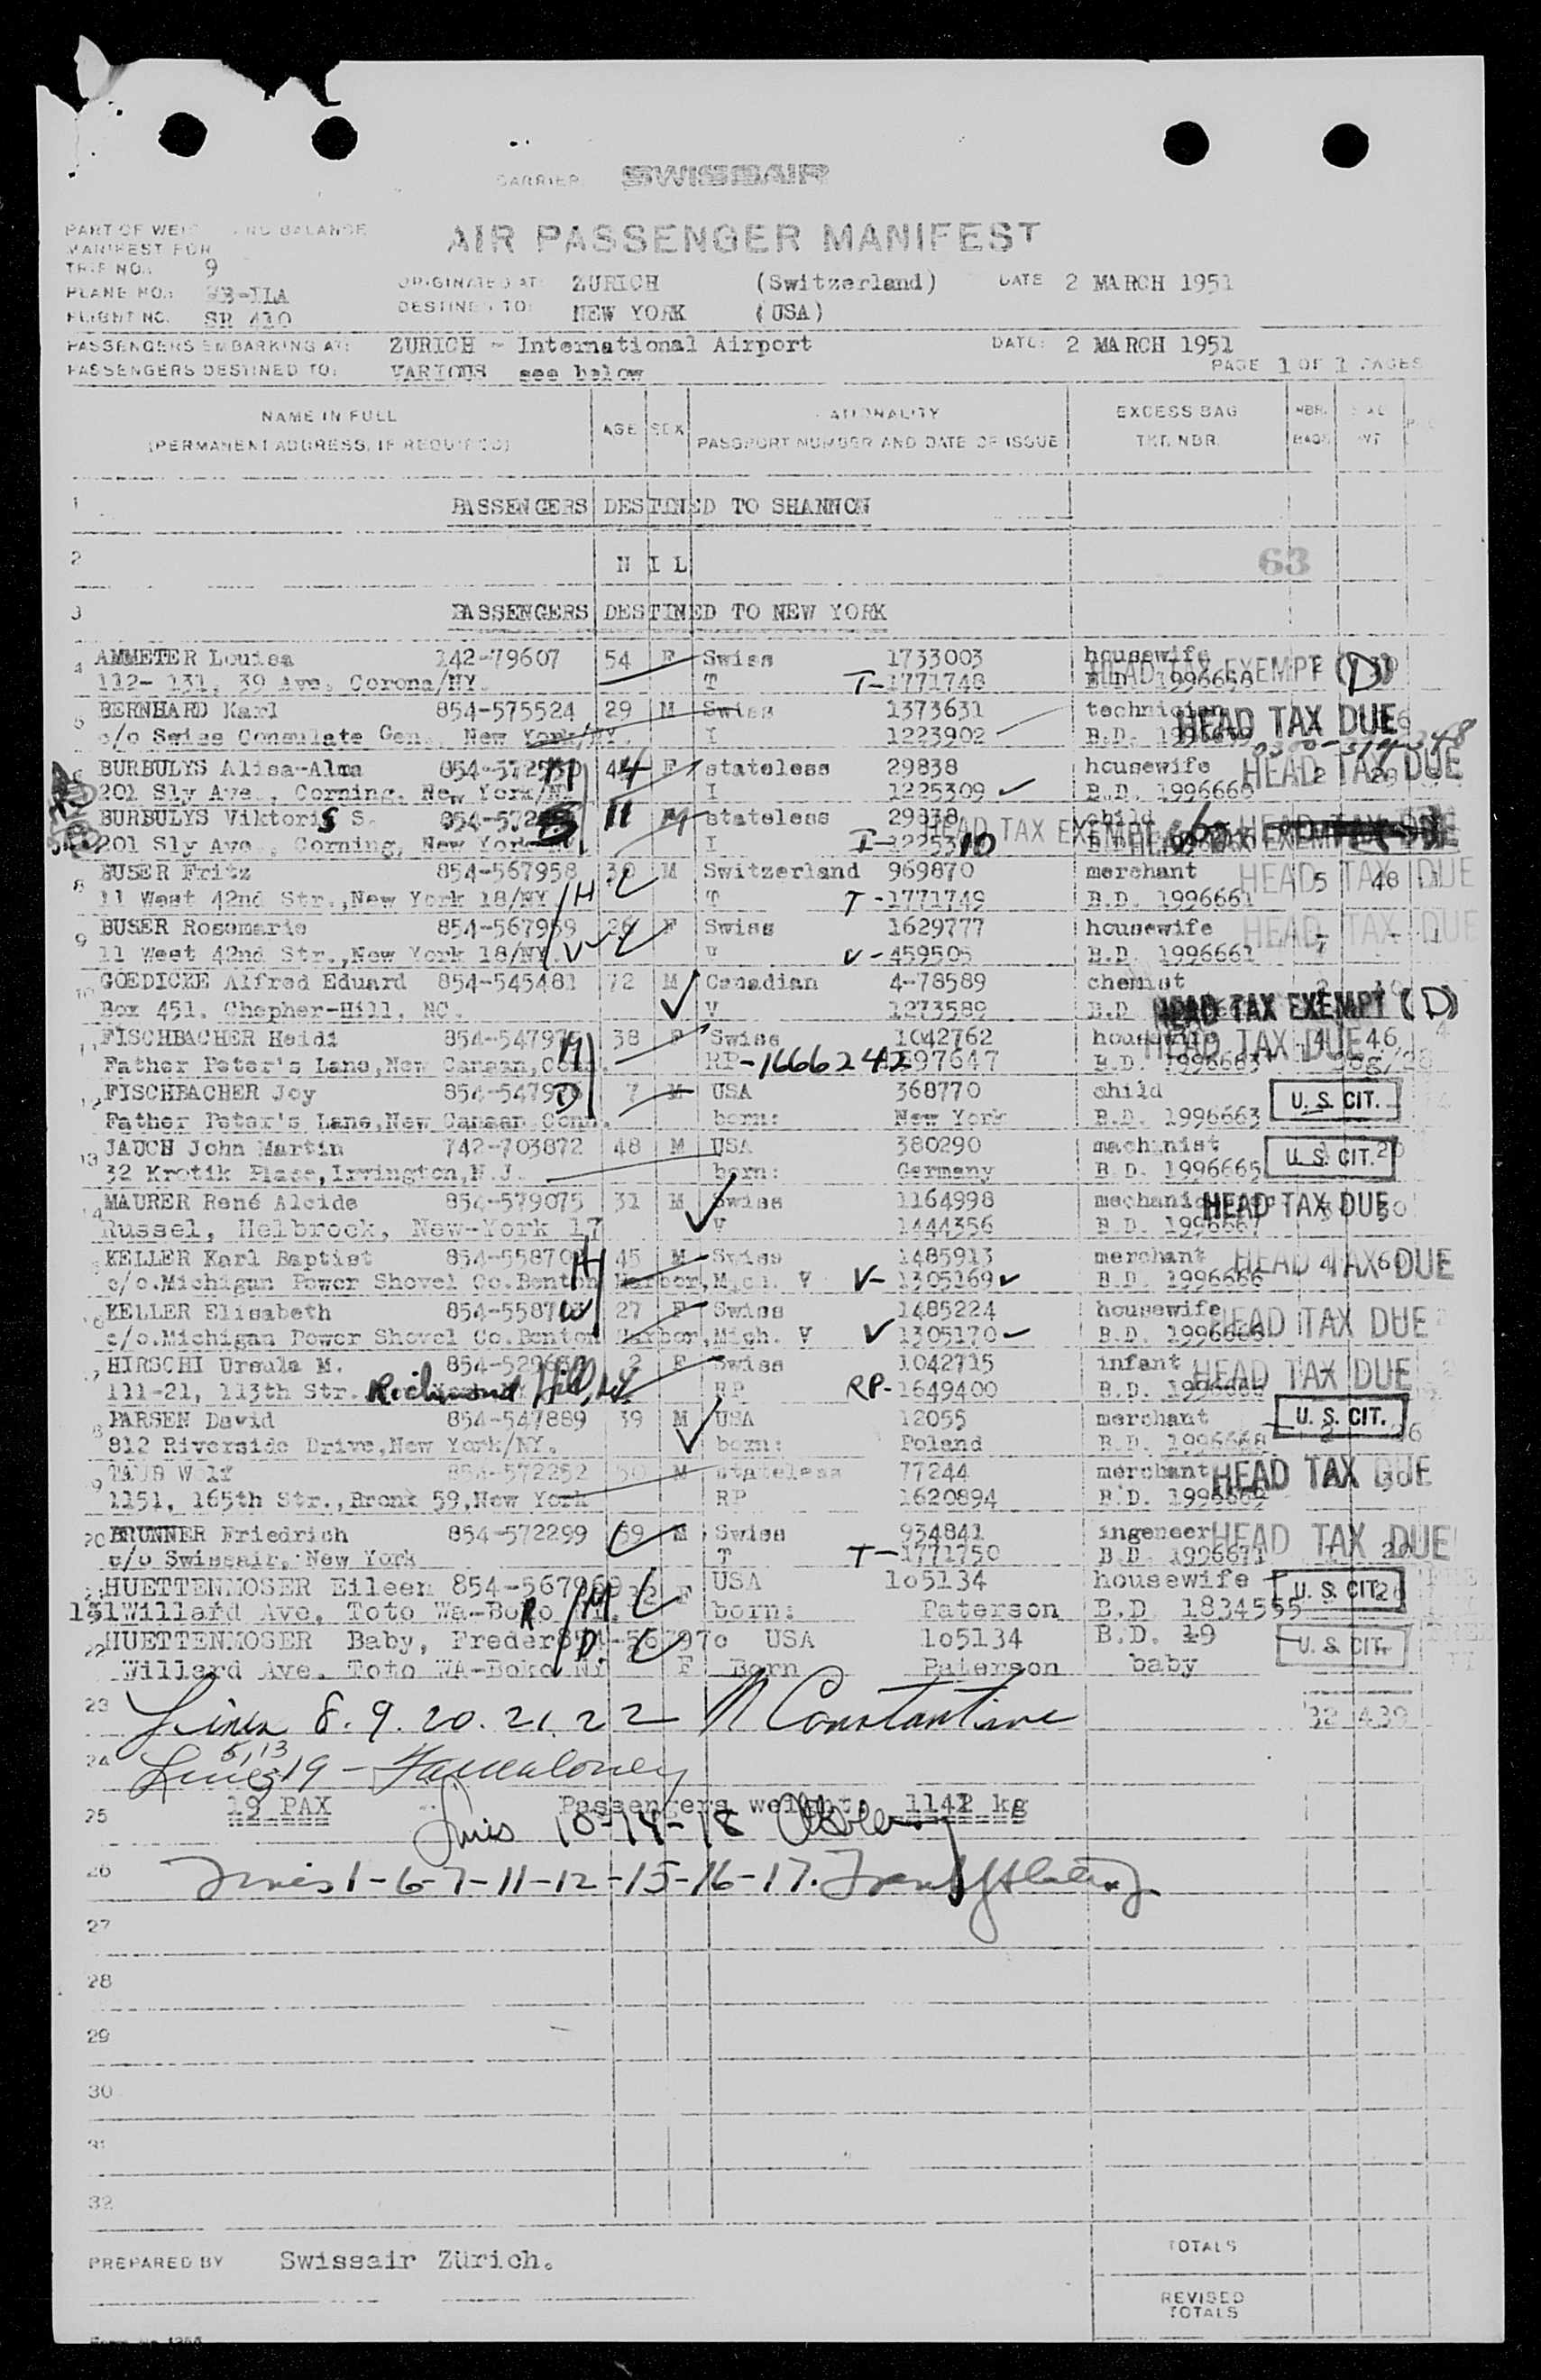 CARRIER SWISSAIR
AIR PASSENGER MANIFEST
PART OF WEI ND BALANCE
MANIFEST FOR
TRIP NO. 9
ORIGINATED AT: ZURICH (Switzerland) DATE 2 MARCH 1951
PLANE NO.: HB-ILA
DESTINED TO: NEW YORK (USA)
FLIGHT NO. SR 410
PASSENGERS EMBARKING AT: ZURICH - International Airport DATE: 2 MARCH 1951
PASSENGERS DESTINED TO: VARIOUS see below PAGE 1 OF 1 PAGES
NAME IN FULL AGE SEX NATIONALITY EXCESS BAG NBR.
(PERMANENT ADDRESS, IF REQUIRED) PASSPORT NUMBER AND DATE OF ISSUE TKT. NBR. BAGS WT
1 PASSENGERS DESTINED TO SHANNON
2 N I L 63
3 PASSENGERS DESTINED TO NEW YORK
4 AMMETER Louisa 142-79607 54 F Swiss 1733003 housewife
112- 131, 39 Ave, Corona/NY. T T-1771748 B.D. 1996658 HEAD TAX EXEMPT (D)
5 BERNHARD Karl 854-575524 29 M Swiss 1373631 technician
c/o Swiss Consulate Gen., New York/NY. I 1223902 B.D. HEAD TAX DUE
6 BURBULYS Alisa-Alma 44 F stateless 29838 housewife
201 Sly Ave., Corning, New York/NY I 1225309 B.D. 1996660 HEAD TAX DUE
BURBULYS Viktoris S. 11 M stateless 29838 child
201 Sly Ave., Corning, New York I HEAD TAX EXEMPT
8 BUSER Fritz 854-567958 30 M Switzerland 969870 merchant 5 48
11 West 42nd Str.,New York 18/NY. H T T-1771749 B.D. 1996661 HEAD TAX DUE
9 BUSER Rosemarie 854-567959 26 F Swiss 1629777 housewife
11 West 42nd Str.,New York 18/NY. V V-459505 B.D. 1996661 HEAD TAX DUE
10 GOEDICKE Alfred Eduard 854-545481 72 M Canadian 4-78589 chemist
Box 451, Chepher-Hill, NC. V 1273589 B.D. HEAD TAX EXEMPT (D)
11 FISCHBACHER Heidi 38 F Swiss 1042762 housewife 46
Father Peter's Lane,New Canaan,Conn. RP-1666242 597647 B.D. 1996663 HEAD TAX DUE
12 FISCHBACHER Joy 7 M USA 368770 child
Father Peter's Lane,New Canaan Conn. born: New York B.D. 1996663 U. S. CIT.
13 JAUCH John Martin 742-703872 48 M USA 380290 machinist
32 Krotik Place,Irvington,N.J. born: Germany B.D. 1996665 U. S. CIT.
14 MAURER René Alcide 854-579075 31 M Swiss 1164998 mechanic HEAD TAX DUE
Russel, Helbrock, New-York 17 V 1444356 B.D. 1996667
KELLER Karl Baptist 45 M Swiss 1485913 merchant HEAD TAX DUE
c/o.Michigan Power Shovel Co.Benton Harbor,Mich. V V-1305169 B.D. 1996666
16 KELLER Elisabeth 27 F Swiss 1485224 housewife HEAD TAX DUE
c/o.Michigan Power Shovel Co.Benton Harbor,Mich. V V 1305170 B.D. 1996666
HIRSCHI Ursula M. 2 F Swiss 1042715 infant HEAD TAX DUE
111-21, 113th Str. Richmond Hill, RP RP-1649400 B.D.
PARSEN David 854-547889 39 M USA 12055 merchant U. S. CIT.
812 Riverside Drive,New York/NY. born: Poland B.D. 1996668
TAUB Wolf 854-572252 50 M stateless 77244 merchant HEAD TAX DUE
1151, 165th Str.,Bronx 59,New York RP 1620894 B.D. 1996669
20 BRUNNER Friedrich 854-572299 59 M Swiss 934841 ingeneer HEAD TAX DUE
c/o Swissair, New York T T-1771750 B.D. 1996671
HUETTENMOSER Eileen 854-567969 32 F USA 1o5134 housewife U. S. CIT.
Willard Ave, Toto Wa-Boro born: Paterson B.D 1834555
22 HUETTENMOSER Baby, Freder USA 1o5134 B.D. 19 U. S. CIT.
Willard Ave. Toto WA-Boko NY F Born Paterson baby
23 Lines 8. 9. 20. 21. 22 N Constantine 32 439
24 Lines 5, 13, 19 -
25 19 PAX Passengers weight: 1142 kg
Lines 10-14-18
26 Lines 1-6-7-11-12-15-16-17.
27
28
29
30
31
32
PREPARED BY Swissair Zürich. TOTALS
REVISED
TOTALS